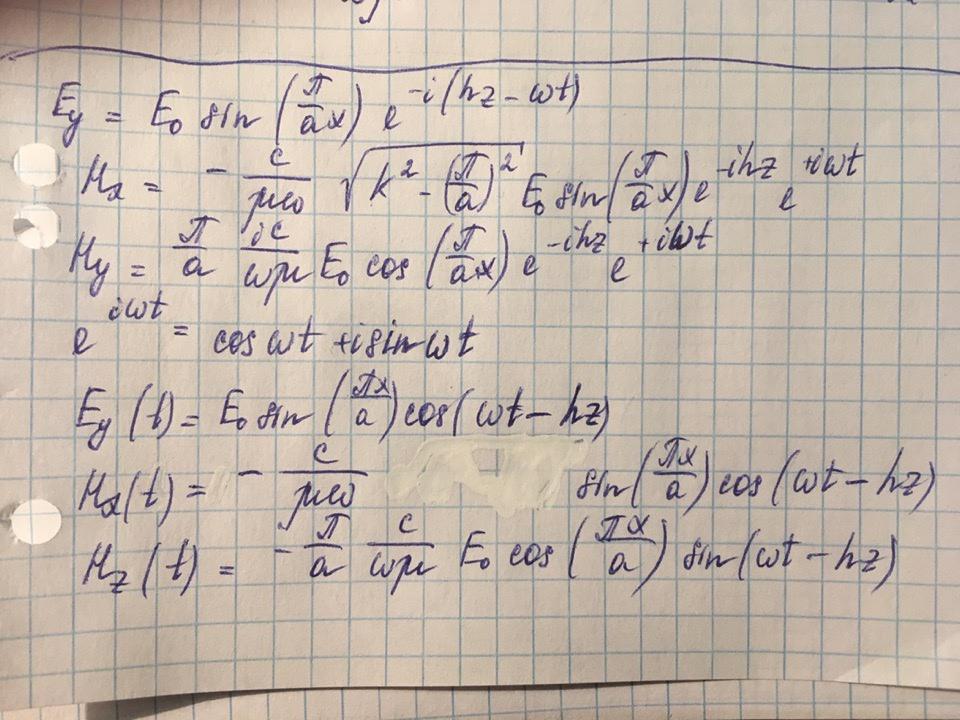 E_y = E_0 sin (π/a x) e^{-i(hz - ωt)}
H_x = - c/μω √(k^2 - (π/a)^2) E_0 sin(π/a x) e^{-ihz} e^{+iωt}
H_y = π/a ic/ωμ E_0 cos (π/a x) e^{-ihz} e^{+iωt}
e^{iωt} = cos ωt + i sin ωt
E_y (t) = E_0 sin (πx/a) cos(ωt - hz)
H_x (t) = - c/μω sin(πx/a) cos(ωt - hz)
H_z (t) = - π/a c/ωμ E_0 cos (πx/a) sin(ωt - hz)